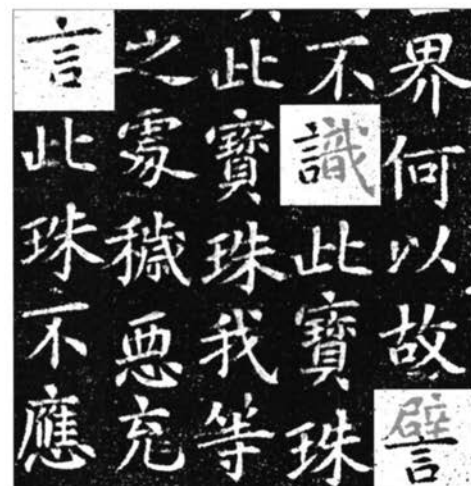 界何以故譬
不識此寶珠
此寶珠我等
之處穢悪充
言此珠不應